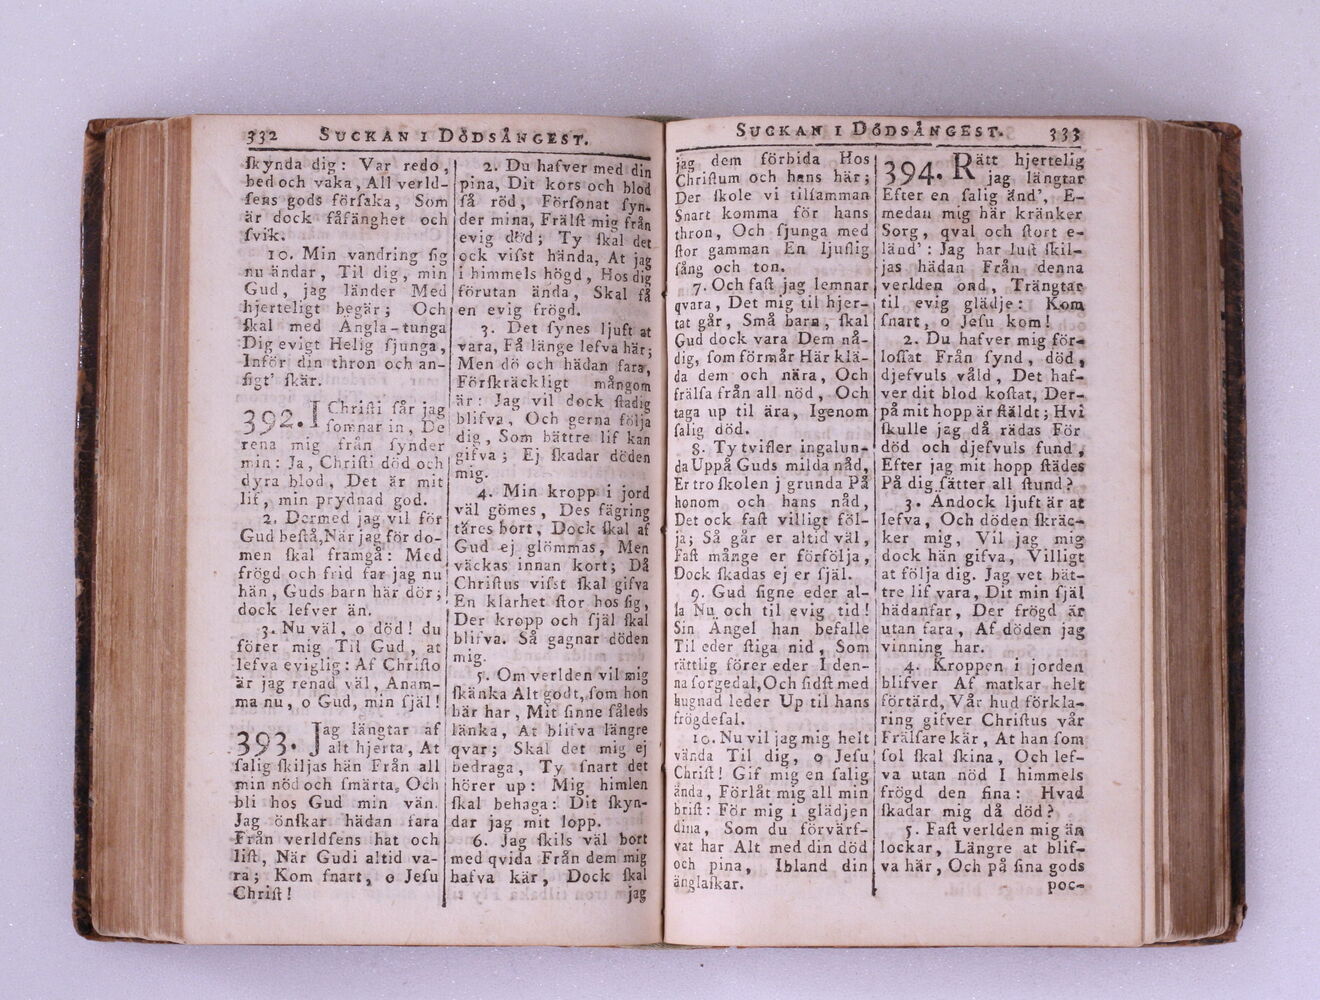 332 SUCKAN I DÖDSÅNGEST.
ſkynda dig: Var redo,
bed och vaka, All verld-
ſens gods förſaka, Som
är dock fåfänghet och
ſvik.
10. Min vandring ſig
nu ändar, Til dig, min
Gud, jag länder Med
hjerteligt begär; Och
ſkal med Angla-tunga
Dig evigt Helig ſjunga,
Inför din thron och an-
ſigt' ſkär.
392. I Chriſti ſår jag
ſomnar in, De
rena mig från ſynder
min: Ja, Chriſti död och
dyra blod, Det är mit
lif, min prydnad god.
2. Dermed jag vil för
Gud beſtå, När jag för do-
men ſkal framgå: Med
frögd och frid far jag nu
hän, Guds barn här dör;
dock lefver än.
3. Nu väl, o död! du
förer mig Til Gud, at
lefva eviglig: Af Chriſto
är jag renad väl, Anam-
ma nu, o Gud, min ſjäl!
393. Jag längtar af
alt hjerta, At
ſalig ſkiljas hän Från all
min nöd och ſmärta, Och
bli hos Gud min vän.
Jag önſkar hädan fara
Från verldſens hat och
liſt, När Gudi altid va-
ra; Kom ſnart, o Jeſu
Chriſt!
2. Du hafver med din
pina, Dit kors och blod
ſå röd, Förſonat ſyn-
der mina, Frälſt mig från
evig död; Ty ſkal det
ock viſst hända, At jag
i himmels högd, Hos dig
förutan ända, Skal få
en evig frögd.
3. Det ſynes ljuft at
vara, Få länge lefva här;
Men dö och hädan fara,
Förſkräckligt mångom
är: Jag vil dock ſtadig
blifva, Och gerna följa
dig, Som bättre lif kan
gifva; Ej ſkadar döden
mig.
4. Min kropp i jord
väl gömes, Des fägring
täres bort, Dock ſkal af
Gud ej glömmas, Men
väckas innan kort; Då
Chriſtus viſst ſkal gifva
En klarhet ſtor hos ſig,
Der kropp och ſjäl ſkal
blifva. Så gagnar döden
mig.
5. Om verlden vil mig
ſkänka Alt godt, ſom hon
här har, Mit ſinne ſåleds
länka, At blifva längre
qvar; Skal det mig ej
bedraga, Ty ſnart det
hörer up: Mig himlen
ſkal behaga: Dit ſkyn-
dar jag mit lopp.
6. Jag ſkils väl bort
med qvida Från dem mig
hafva kär, Dock ſkal
jag
SUCKAN I DÖDSÅNGEST. 333
jag dem förbida Hos
Chriſtum och hans här;
Der ſkole vi tilſamman
Snart komma för hans
thron, Och ſjunga med
ſtor gamman En ljuflig
ſång och ton.
7. Och faſt jag lemnar
qvara, Det mig til hjer-
tat går, Små barn, ſkal
Gud dock vara Dem nå-
dig, ſom förmår Här klä-
da dem och nära, Och
frälſa från all nöd, Och
taga up til ära, Igenom
ſalig död.
8. Ty tvifler ingalun-
da Uppå Guds milda nåd,
Er tro ſkolen j grunda På
honom och hans nåd,
Det ock faſt villigt föl-
ja; Så går er altid väl,
Faſt månge er förfölja,
Dock ſkadas ej er ſjäl.
9. Gud ſigne eder al-
la Nu och til evig tid!
Sin Ängel han befalle
Til eder ſtiga nid, Som
rättlig förer eder I den-
na ſorgedal, Och ſidſt med
hugnad leder Up til hans
frögdeſal.
10. Nu vil jag mig helt
vända Til dig, o Jeſu
Chriſt! Gif mig en ſalig
ända, Förlåt mig all min
briſt: För mig i glädjen
dina, Som du förvärf-
vat har Alt med din död
och pina, Ibland din
änglaſkar.
394. Rätt hjertelig
jag längtar
Efter en ſalig änd', E-
medan mig här kränker
Sorg, qval och ſtort e-
länd': Jag har luſt ſkil-
jas hädan Från denna
verlden ond, Trängtar
til evig glädje: Kom
ſnart, o Jeſu kom!
2. Du hafver mig för-
loſſat Från ſynd, död,
djefvuls våld, Det haf-
ver dit blod koſtat, Der-
på mit hopp är ſtäldt; Hvi
ſkulle jag då rädas För
död och djefvuls fund,
Efter jag mit hopp ſtädes
På dig ſätter all ſtund?
3. Ändock ljuft är at
lefva, Och döden ſkräc-
ker mig, Vil jag mig
dock hän gifva, Villigt
at följa dig. Jag vet bät-
tre lif vara, Dit min ſjäl
hädanfar, Der frögd är
utan fara, Af döden jag
vinning har.
4. Kroppen i jorden
blifver Af matkar helt
förtärd, Vår hud förkla-
ring gifver Chriſtus vår
Frälſare kär, At han ſom
ſol ſkal ſkina, Och lef-
va utan nöd I himmels
frögd den fina: Hvad
ſkadar mig då död?
5. Faſt verlden mig än
lockar, Längre at blif-
va här, Och på ſina gods
poc-